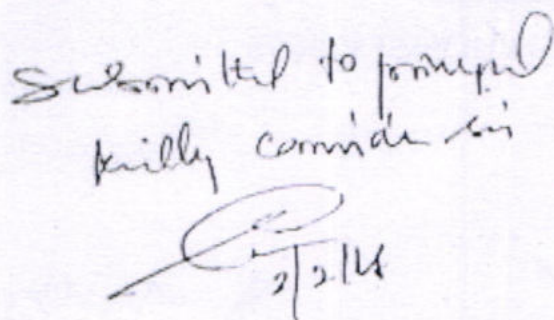 Submitted to principal
kindly consider sir
2/2/18